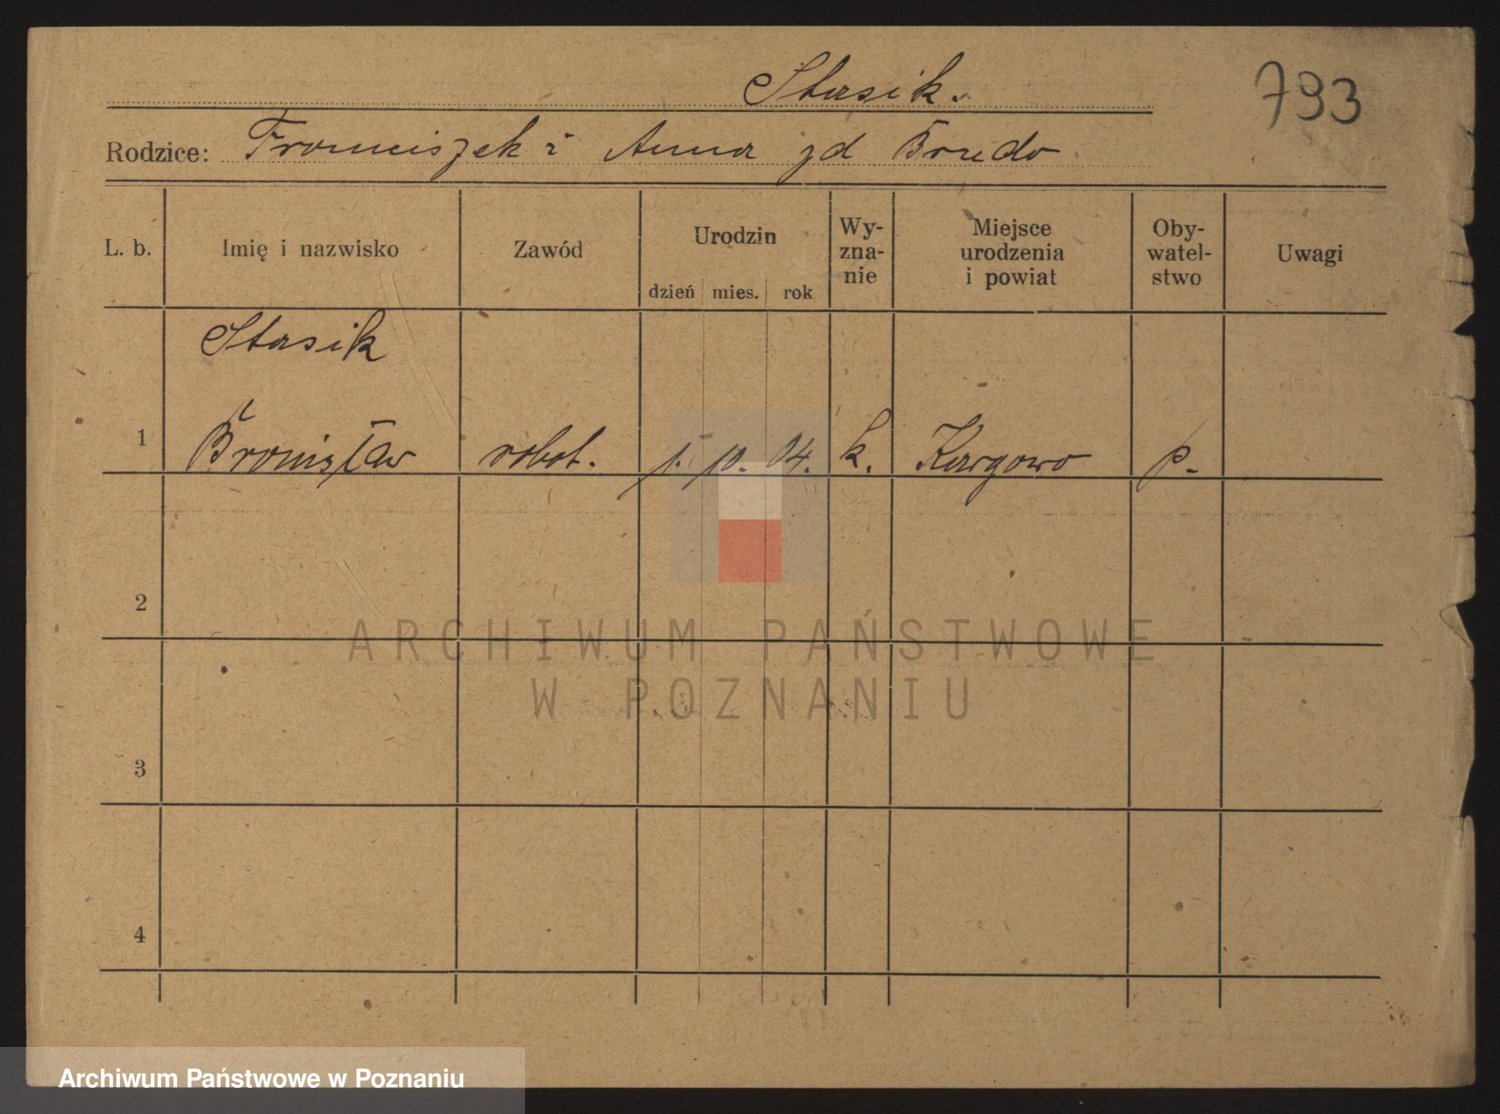 Stasik.
793
Rodzice: Franciszek i Anna zd Bruda
L. b.
Imię i nazwisko
Zawód
Urodzin
dzień mies. rok
Wy-
zna-
nie
Miejsce
urodzenia
i powiat
Oby-
watel-
stwo
Uwagi
Stasik
1 Bronisław robot. 1. 10. 04. k. Kargowo p.
2
ARCHIWUM PAŃSTWOWE
W POZNANIU
3
4
Archiwum Państwowe w Poznaniu